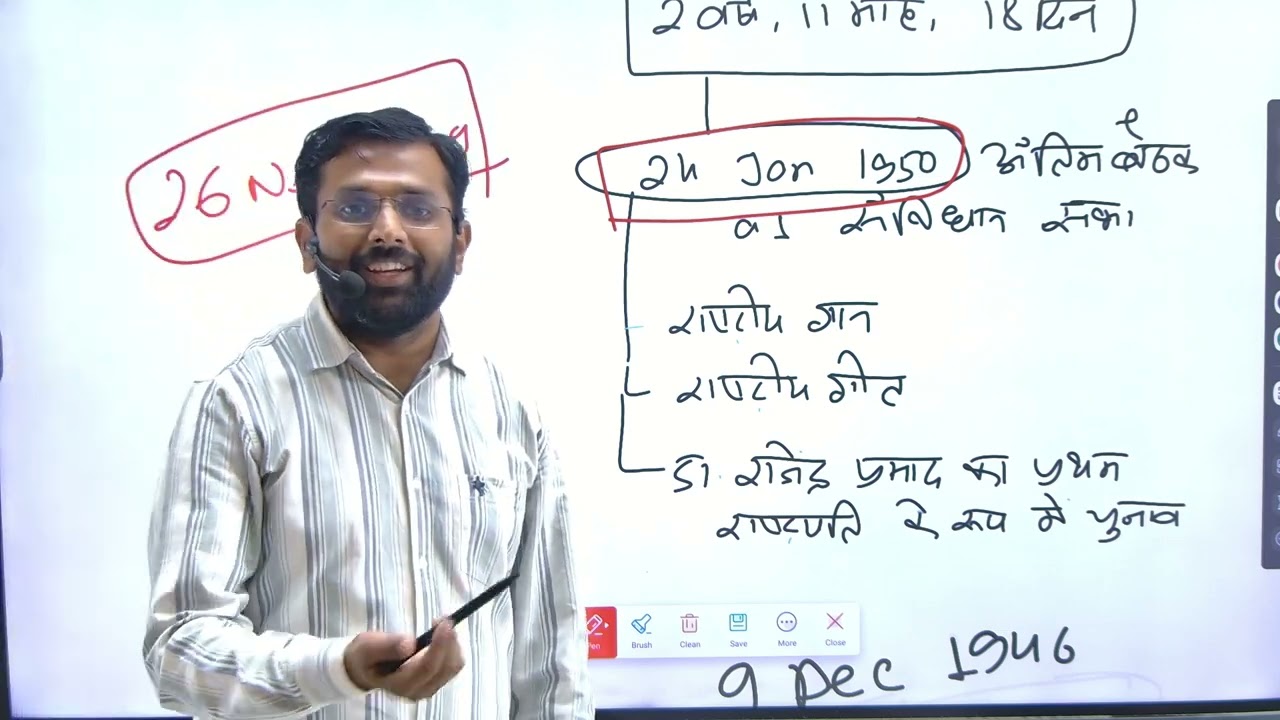 2 वर्ष, 11 माह, 18 दिन
26 N
24 Jan 1950 अंतिम बैठक
संविधान सभा
राष्ट्रीय गान
राष्ट्रीय गीत
डा राजेंद्र प्रसाद का प्रथम
राष्ट्रपति के रूप में चुनाव
Pen
Brush
Clean
Save
More
Close
9 Dec 1946